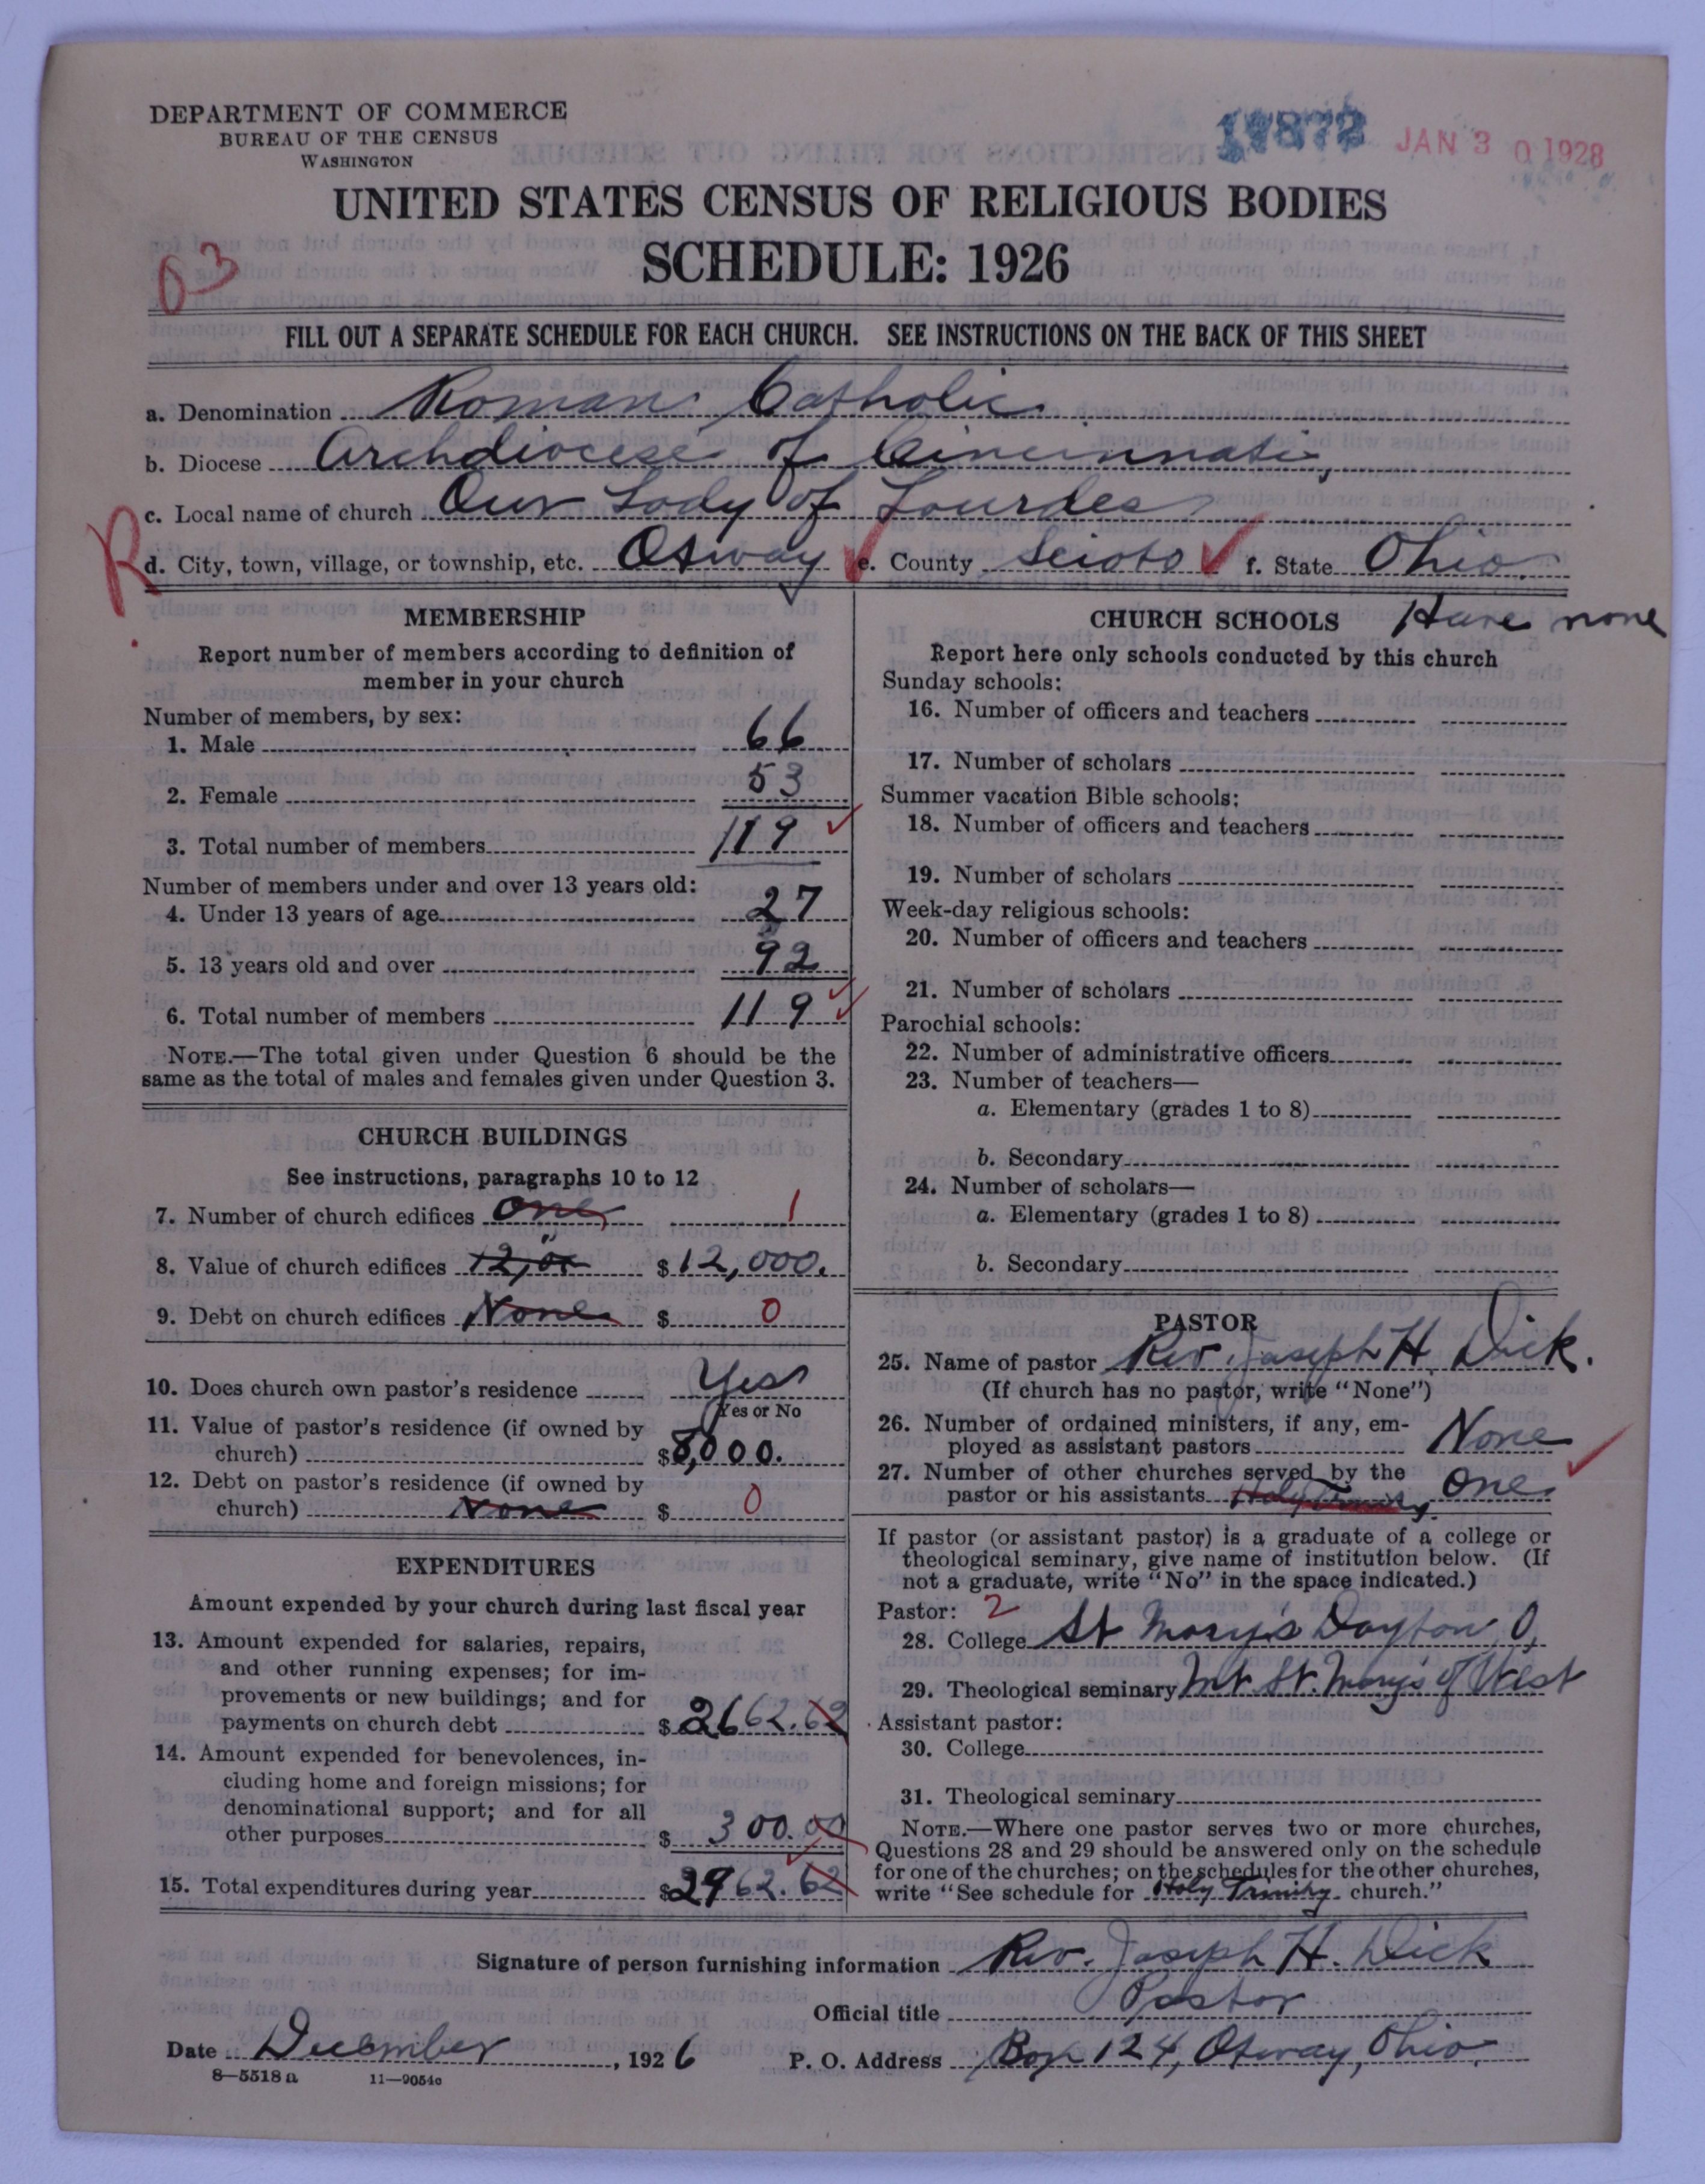 DEPARTMENT OF COMMERCE
BUREAU OF THE CENSUS
WASHINGTON
17872 JAN 30 1928
UNITED STATES CENSUS OF RELIGIOUS BODIES
SCHEDULE: 1926
03
FILL OUT A SEPARATE SCHEDULE FOR EACH CHURCH. SEE INSTRUCTIONS ON THE BACK OF THIS SHEET
a. Denomination Roman Catholic
b. Diocese Archdiocese of Cincinnati,
c. Local name of church Our Lady of Lourdes
R
d. City, town, village, or township, etc. Otway e. County Scioto f. State Ohio.
MEMBERSHIP
Report number of members according to definition of
member in your church
Number of members, by sex:
1. Male 66
2. Female 53
3. Total number of members 119
Number of members under and over 13 years old:
4. Under 13 years of age 27
5. 13 years old and over 92
6. Total number of members 119
NOTE.—The total given under Question 6 should be the
same as the total of males and females given under Question 3.
CHURCH BUILDINGS
See instructions, paragraphs 10 to 12
7. Number of church edifices one 1
8. Value of church edifices $12,000.
9. Debt on church edifices None $ 0
10. Does church own pastor's residence Yes
Yes or No
11. Value of pastor's residence (if owned by
church) $8,000.
12. Debt on pastor's residence (if owned by
church) None $ 0
EXPENDITURES
Amount expended by your church during last fiscal year
13. Amount expended for salaries, repairs,
and other running expenses; for im-
provements or new buildings; and for
payments on church debt $2662.62
14. Amount expended for benevolences, in-
cluding home and foreign missions; for
denominational support; and for all
other purposes $ 300.00
15. Total expenditures during year $2962.62
CHURCH SCHOOLS Have none
Report here only schools conducted by this church
Sunday schools:
16. Number of officers and teachers
17. Number of scholars
Summer vacation Bible schools:
18. Number of officers and teachers
19. Number of scholars
Week-day religious schools:
20. Number of officers and teachers
21. Number of scholars
Parochial schools:
22. Number of administrative officers
23. Number of teachers—
a. Elementary (grades 1 to 8)
b. Secondary
24. Number of scholars—
a. Elementary (grades 1 to 8)
b. Secondary
PASTOR
25. Name of pastor Rev. Joseph H. Dick.
(If church has no pastor, write "None")
26. Number of ordained ministers, if any, em-
ployed as assistant pastors None
27. Number of other churches served by the
pastor or his assistants Holy Trinity. One
If pastor (or assistant pastor) is a graduate of a college or
theological seminary, give name of institution below. (If
not a graduate, write "No" in the space indicated.)
Pastor: 2
28. College St Mary's Dayton O.
29. Theological seminary Mt. St. Mary's of West
Assistant pastor:
30. College
31. Theological seminary
NOTE.—Where one pastor serves two or more churches,
Questions 28 and 29 should be answered only on the schedule
for one of the churches; on the schedules for the other churches,
write "See schedule for Holy Trinity church."
Signature of person furnishing information Rev. Joseph H. Dick
Official title Pastor
Date December, 1926 P. O. Address Box 124, Otway, Ohio.
8—5518a 11—9054c